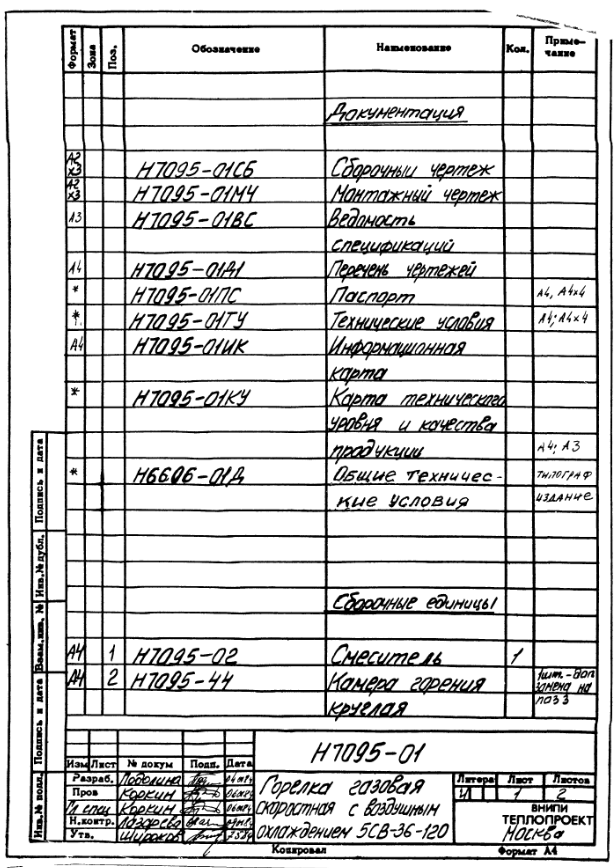 Формат Зона Поз. Обозначение Наименование Кол. Приме-
чание
Документация
А2
х3 Н7095-01СБ Сборочный чертеж
А2
х3 Н7095-01МЧ Монтажный чертеж
А3 Н7095-01ВС Ведомость
спецификаций
А4 Н7095-01Д1 Перечень чертежей
* Н7095-01ПС Паспорт А4, А4х4
* Н7095-01ТУ Технические условия А4; А4х4
А4 Н7095-01ИК Информационная
карта
* Н7095-01КУ Карта технического
уровня и качества
продукции А4; А3
* Н6606-01Д Общие техничес- типограф
кие условия издание
Сборочные единицы
А4 1 Н7095-02 Смеситель 1
А4 2 Н7095-44 Камера горения 1шт.-Доп
замена на
круглая поз 3
Н7095-01
Изм Лист № докум Подп. Дата
Разраб. Подолина
Пров Коркин
Гл спец Коркин
Н.контр. Лазарева
Утв. Широков
Горелка газовая
скоростная с воздушным
охлаждением 5СВ-36-120
Литера Лист Листов
И 1 2
ВНИПИ
ТЕПЛОПРОЕКТ
Москва
Копировал Формат А4
Инв.№ подл. Подпись и дата Взам.инв. № Инв.№ дубл. Подпись и дата